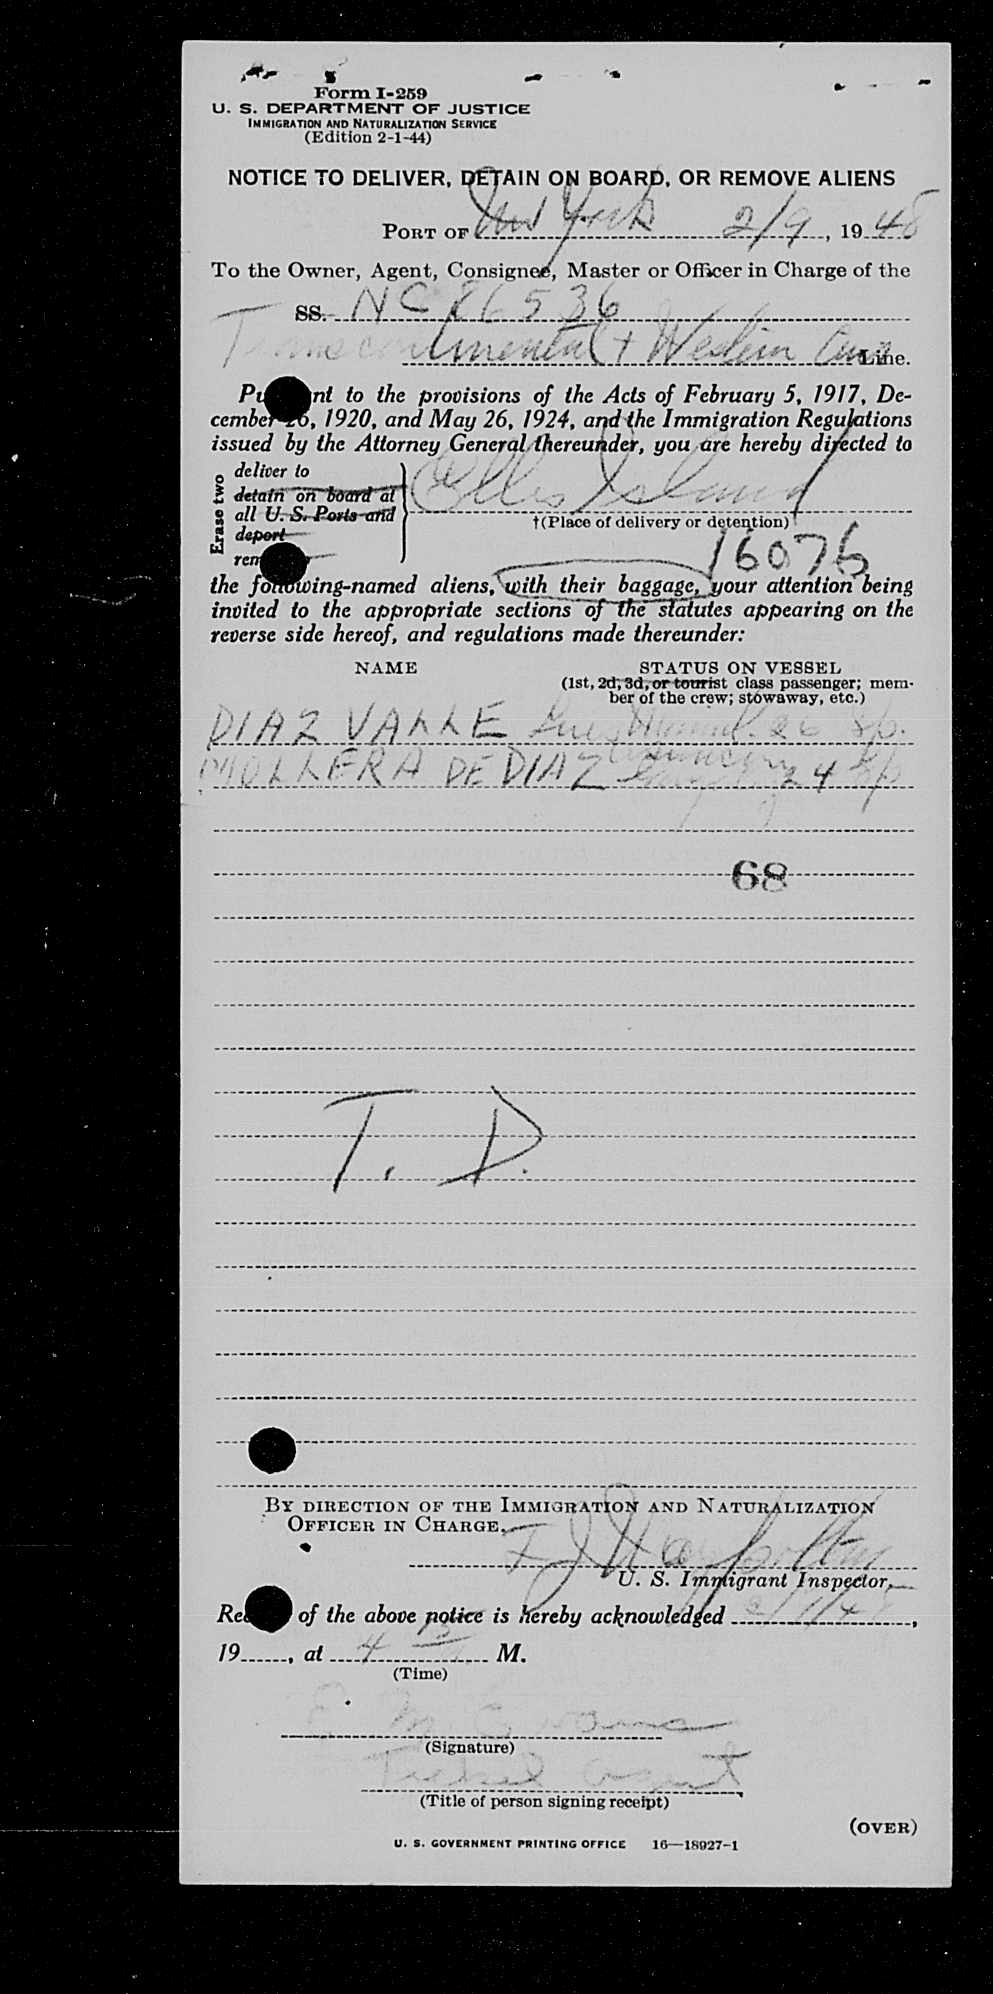 Form I-259
U. S. DEPARTMENT OF JUSTICE
IMMIGRATION AND NATURALIZATION SERVICE
(Edition 2-1-44)
NOTICE TO DELIVER, DETAIN ON BOARD, OR REMOVE ALIENS
PORT OF New York 2/9, 1948
To the Owner, Agent, Consignee, Master or Officer in Charge of the
SS. NC 86536
Transcontinental + Western Line.
nt to the provisions of the Acts of February 5, 1917, De-
cember 26, 1920, and May 26, 1924, and the Immigration Regulations
issued by the Attorney General thereunder, you are hereby directed to
Erase two
deliver to
detain on board at
all U. S. Ports and
deport
Ellis Island
†(Place of delivery or detention)
16076
the following-named aliens, with their baggage, your attention being
invited to the appropriate sections of the statutes appearing on the
reverse side hereof, and regulations made thereunder:
NAME STATUS ON VESSEL
(1st, 2d, 3d, or tourist class passenger; mem-
ber of the crew; stowaway, etc.)
DIAZ VALLE 26 Sp.
MOLLERA DE DIAZ 24 Sp
68
T. D.
BY DIRECTION OF THE IMMIGRATION AND NATURALIZATION
OFFICER IN CHARGE.
U. S. Immigrant Inspector.
of the above notice is hereby acknowledged
19, at 4 M.
(Time)
(Signature)
Agent
(Title of person signing receipt)
(OVER)
U. S. GOVERNMENT PRINTING OFFICE 16—18927-1